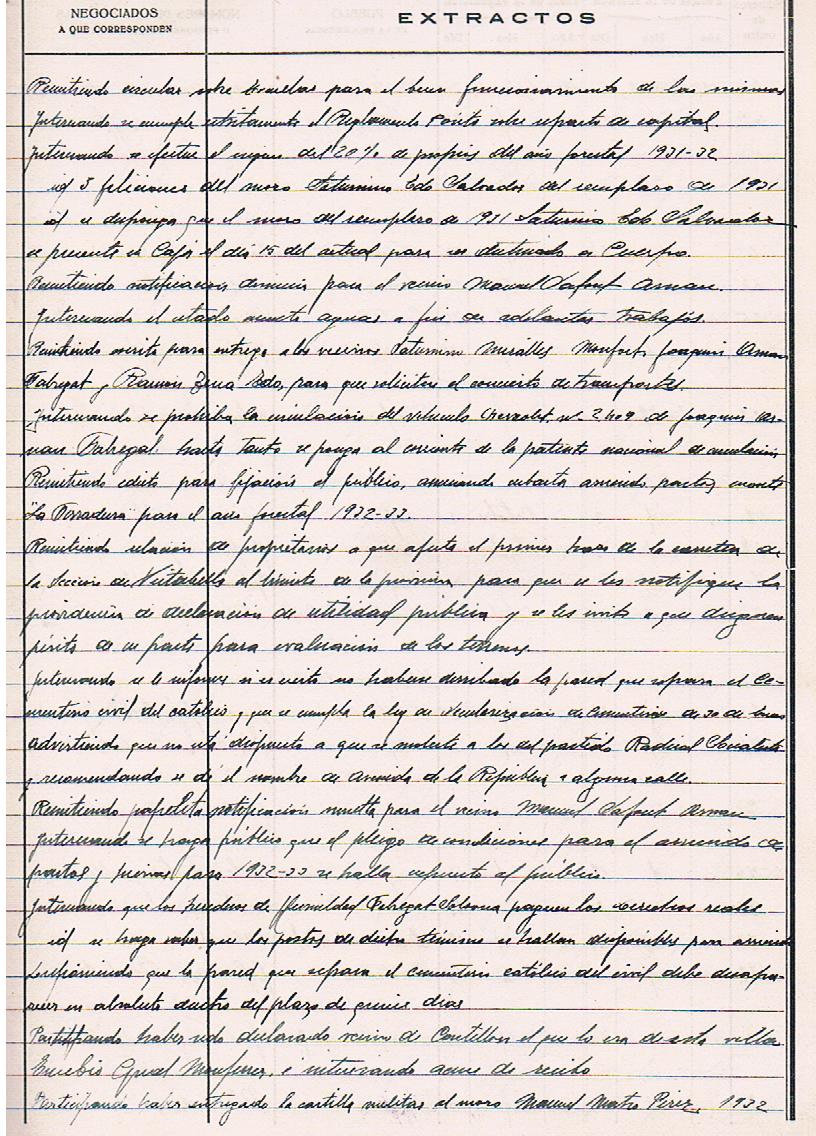 NEGOCIADOS
A QUE CORRESPONDEN
EXTRACTOS
Remitiendo circular sobre Escuelas para el buen funcionamiento de las mismas
Interesando se cumpla estrictamente el Reglamento sobre reparto de capital.
Interesando se efectue el ingreso del 20% de propios del año forestal 1931-32
id 3 filiaciones del mozo Saturnino Edo Salvador del remplazo de 1931
id se disponga que el mozo del reemplazo de 1931 Saturnino Edo Salvador
se presente en Caja el dia 15 del actual para ser destinado a Cuerpo.
Remitiendo notificacion denuncia para el vecino Manuel Safont Arnau.
Interesando el estado aguas a fin de adelantar trabajos.
Remitiendo escrito para entrega a los vecinos Saturnino Miralles Monfort, Joaquin Arnau
Fabregat y Ramon Edo, para que soliciten el concierto de transportes.
Interesando se prohiba la circulacion del vehiculo Chevrolet nº 2.409 de Joaquin Ar-
nau Fabregat hasta tanto se ponga al corriente de la patente nacional de circulacion
Remitiendo edicto para fijacion al público, anunciando subasta arriendo pastos monte
"La Forradura" para el año forestal 1932-33.
Remitiendo relacion de propietarios a que afecta el primer trozo de la carretera de
la Seccion de Vistabella al limite de la provincia, para que se les notifique la
providencia de declaracion de utilidad pública y se les invite a que designen
perito de su parte para evaluacion de los terrenos.
Interesando se le informe si es cierto no haberse derribado la pared que separa el Ce-
menterio civil del catolico y que se cumpla la ley de Secularizacion de Cementerios de 30 de Enero
advirtiendo que no esta dispuesto a que se moleste a los del partido Radical Socialista
y recomendando se dé el nombre de avenida de la República a alguna calle.
Remitiendo papeleta notificacion multa para el vecino Manuel Safont Arnau
Interesando se haga público que el pliego de condiciones para el arriendo de
pastos y para 1932-33 se halla expuesto al público.
Interesando que los herederos de Fabregat paguen los derechos reales
id se haga saber que los pastos de dicho término se hallan disponibles para arriendo
Disponiendo que la pared que separa el cementerio catolico del civil debe desapa-
recer en absoluto dentro del plazo de quince dias
Participando haber sido declarado vecino de Castellon el que lo era de esta villa
Eusebio Gual Monferrer, e interesando acuse de recibo
Participando haber entregado la cartilla militar al mozo Manuel Perez, 1932